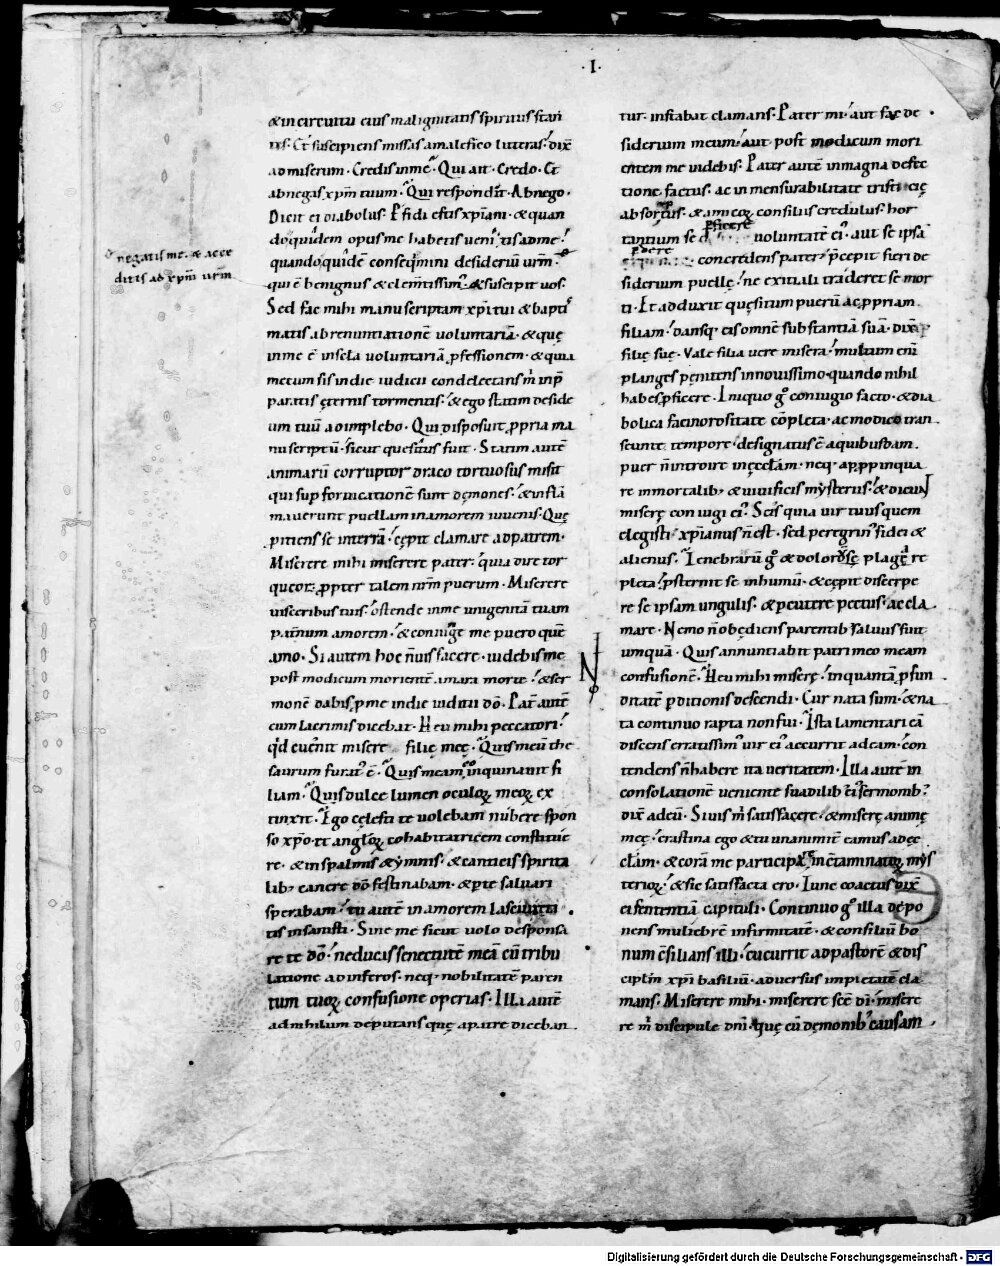 ·I·
& in circuitu eius malignitatis spiritus stan
tes. Et suscipiens missas a malefico litteras. dix̄
ad miserum. Credis in me? Qui ait. Credo. Et
abnegas xp̄m tuum? Qui respondit. Abnego.
Dicit ei diabolus. Pfidi estis xp̄iani. & quan
do quidem opus me habetis ueni tis ad me.
negatis me. & acce
ditis ad xp̄m ur̄m.
quando quidē conseq̄mini desideriū ur̄m.
qui ē benignus & clemtissim. & suscipit uos.
Sed fac mihi manuscriptam xp̄i tui & baptis
matis abrenuntationē uoluntariā. & quę
in me ē in scla uoluntariā pfessionem. & quia
mecum sis in die iudicii condelectans m̄ in p̄
paratis ęternis tormentis. & ego statim deside
um tuū adimplebo. Qui disposuit ppria ma
nu scriptū. sicut quesitus fuit. Statim autē
animarū corruptor draco tortuosus misit
qui sup fornicationē sunt dęmones. & infla
mauerunt puellam in amorem iuuenis. Quę
pitiens se in terrā. cępit clamare ad patrem.
Miserere mihi miserere pater. quia dire tor
queor. ppter talem nr̄m puerum. Miserere
uisceribus tuis. ostende in me unigenitā tuam
pat̄num amorem. & coniuge me puero quē
amo. Si autem hoc n̄ uis facere. uidebis me
post modicum morientē amara morte. & ser
monē dabis p me in die iudicii dō. Pat̄ autē
cum lacrimis dicebat. Heu mihi peccatori.
qd euenit misere filię meę. Quis meū the
saurum furat ē. Quis meam inquinauit fi
liam. Quis dulce lumen oculoꝝ meoꝝ ex
tinxit. Ego cęlesti te uolebam nubere spon
so xp̄o. et angloꝝ cohabitatricem constitue
re. & in psalmis & ymnis. & canticis spirita
lib; canere dō festinabam. & p te saluari
sperabam. tu autē in amorem lasciuita
tis insanisti. Sine me sicut uolo desponsa
re te dō. ne ducis senectutē meā cū tribu
latione ad inferos. neq; nobilitatē paren
tum tuoꝝ confusione operias. Illa autē
ad nihilum deputans quę a patre diceban
tur. instabat clamans. Pater mi. aut fac de
siderium meum. aut post modicum mori
entem me uidebis. Pater autē in magna defec
tione factus. ac in mensurabilitate tristicię
absortus. & amicoꝝ consiliis credulus. hor
pficere
tantium se uoluntatē ei. aut se ipsā
pdere
concredens pater. p̄cepit fieri de
siderium puellę. ne exitiali traderet se mor
ti. Et adduxit quęsitum puerū ac ppriam
filiam. dansq; eis omnē substantiā suā. dix̄
filię suę. Vale filia uere misera. multum eni
planges pęnitens in nouissimo. quando nihil
habes pficere. Iniquo g̊ coniugio facto. & dia
bolica facinorositate cōpleta. ac modico tran
seunte tempore. designatus ē a quibusdam
puer n̄ introire in ęcclam. neq; appinqua
re immortalib; & uiuificis mysteriis. & dicun
miserę coniugi ei. Scis quia uir tuus quem
elegisti. xp̄ianus n̄ est. sed peregrin fidei &
alienus. Tenebrarū g̊ & dolorosę plagę re
pleta. psternit se in humū. & cępit discerpe
re se ipsam ungulis. & pcutere pectus. ac cla
mare. Nemo n̄ obędiens parentib; saluus fuit
umquā. Quis annuntiabit patri meo meam
confusionē. Heu mihi miserę. in quantā pfun
ditatē pditionis descendi. Cur nata sum. & na
ta continuo rapta non fui. Ista lamentari eā
discens erratissim uir ei accurrit ad eam. con
tendens n̄ habere ita ueritatem. Illa autē in
consolationē ueniente suadilib; ei sermonib;
dix̄ ad eū. Si uis m̄ satisfacere. & miserę animę
meę. crastina ego & tu unanimit eamus ad ęc
clam. & corā me particips incōtaminatoꝝ mys
terioꝝ. & sic satisfacta ero. Tunc coactus dix̄
ei sententiā capituli. Continuo g̊ illa depo
nens muliebrē infirmitatē. & consiliū bo
num cōsilians illi. cucurrit ad pastorē & dis
ciplm xp̄i basiliū. aduersus impietatē cla
mans. Miserere mihi. miserere sc̄e dī. misere
re m̄ discipule dn̄i. quę cū dęmonib; causam
Digitalisierung gefördert durch die Deutsche Forschungsgemeinschaft - DFG